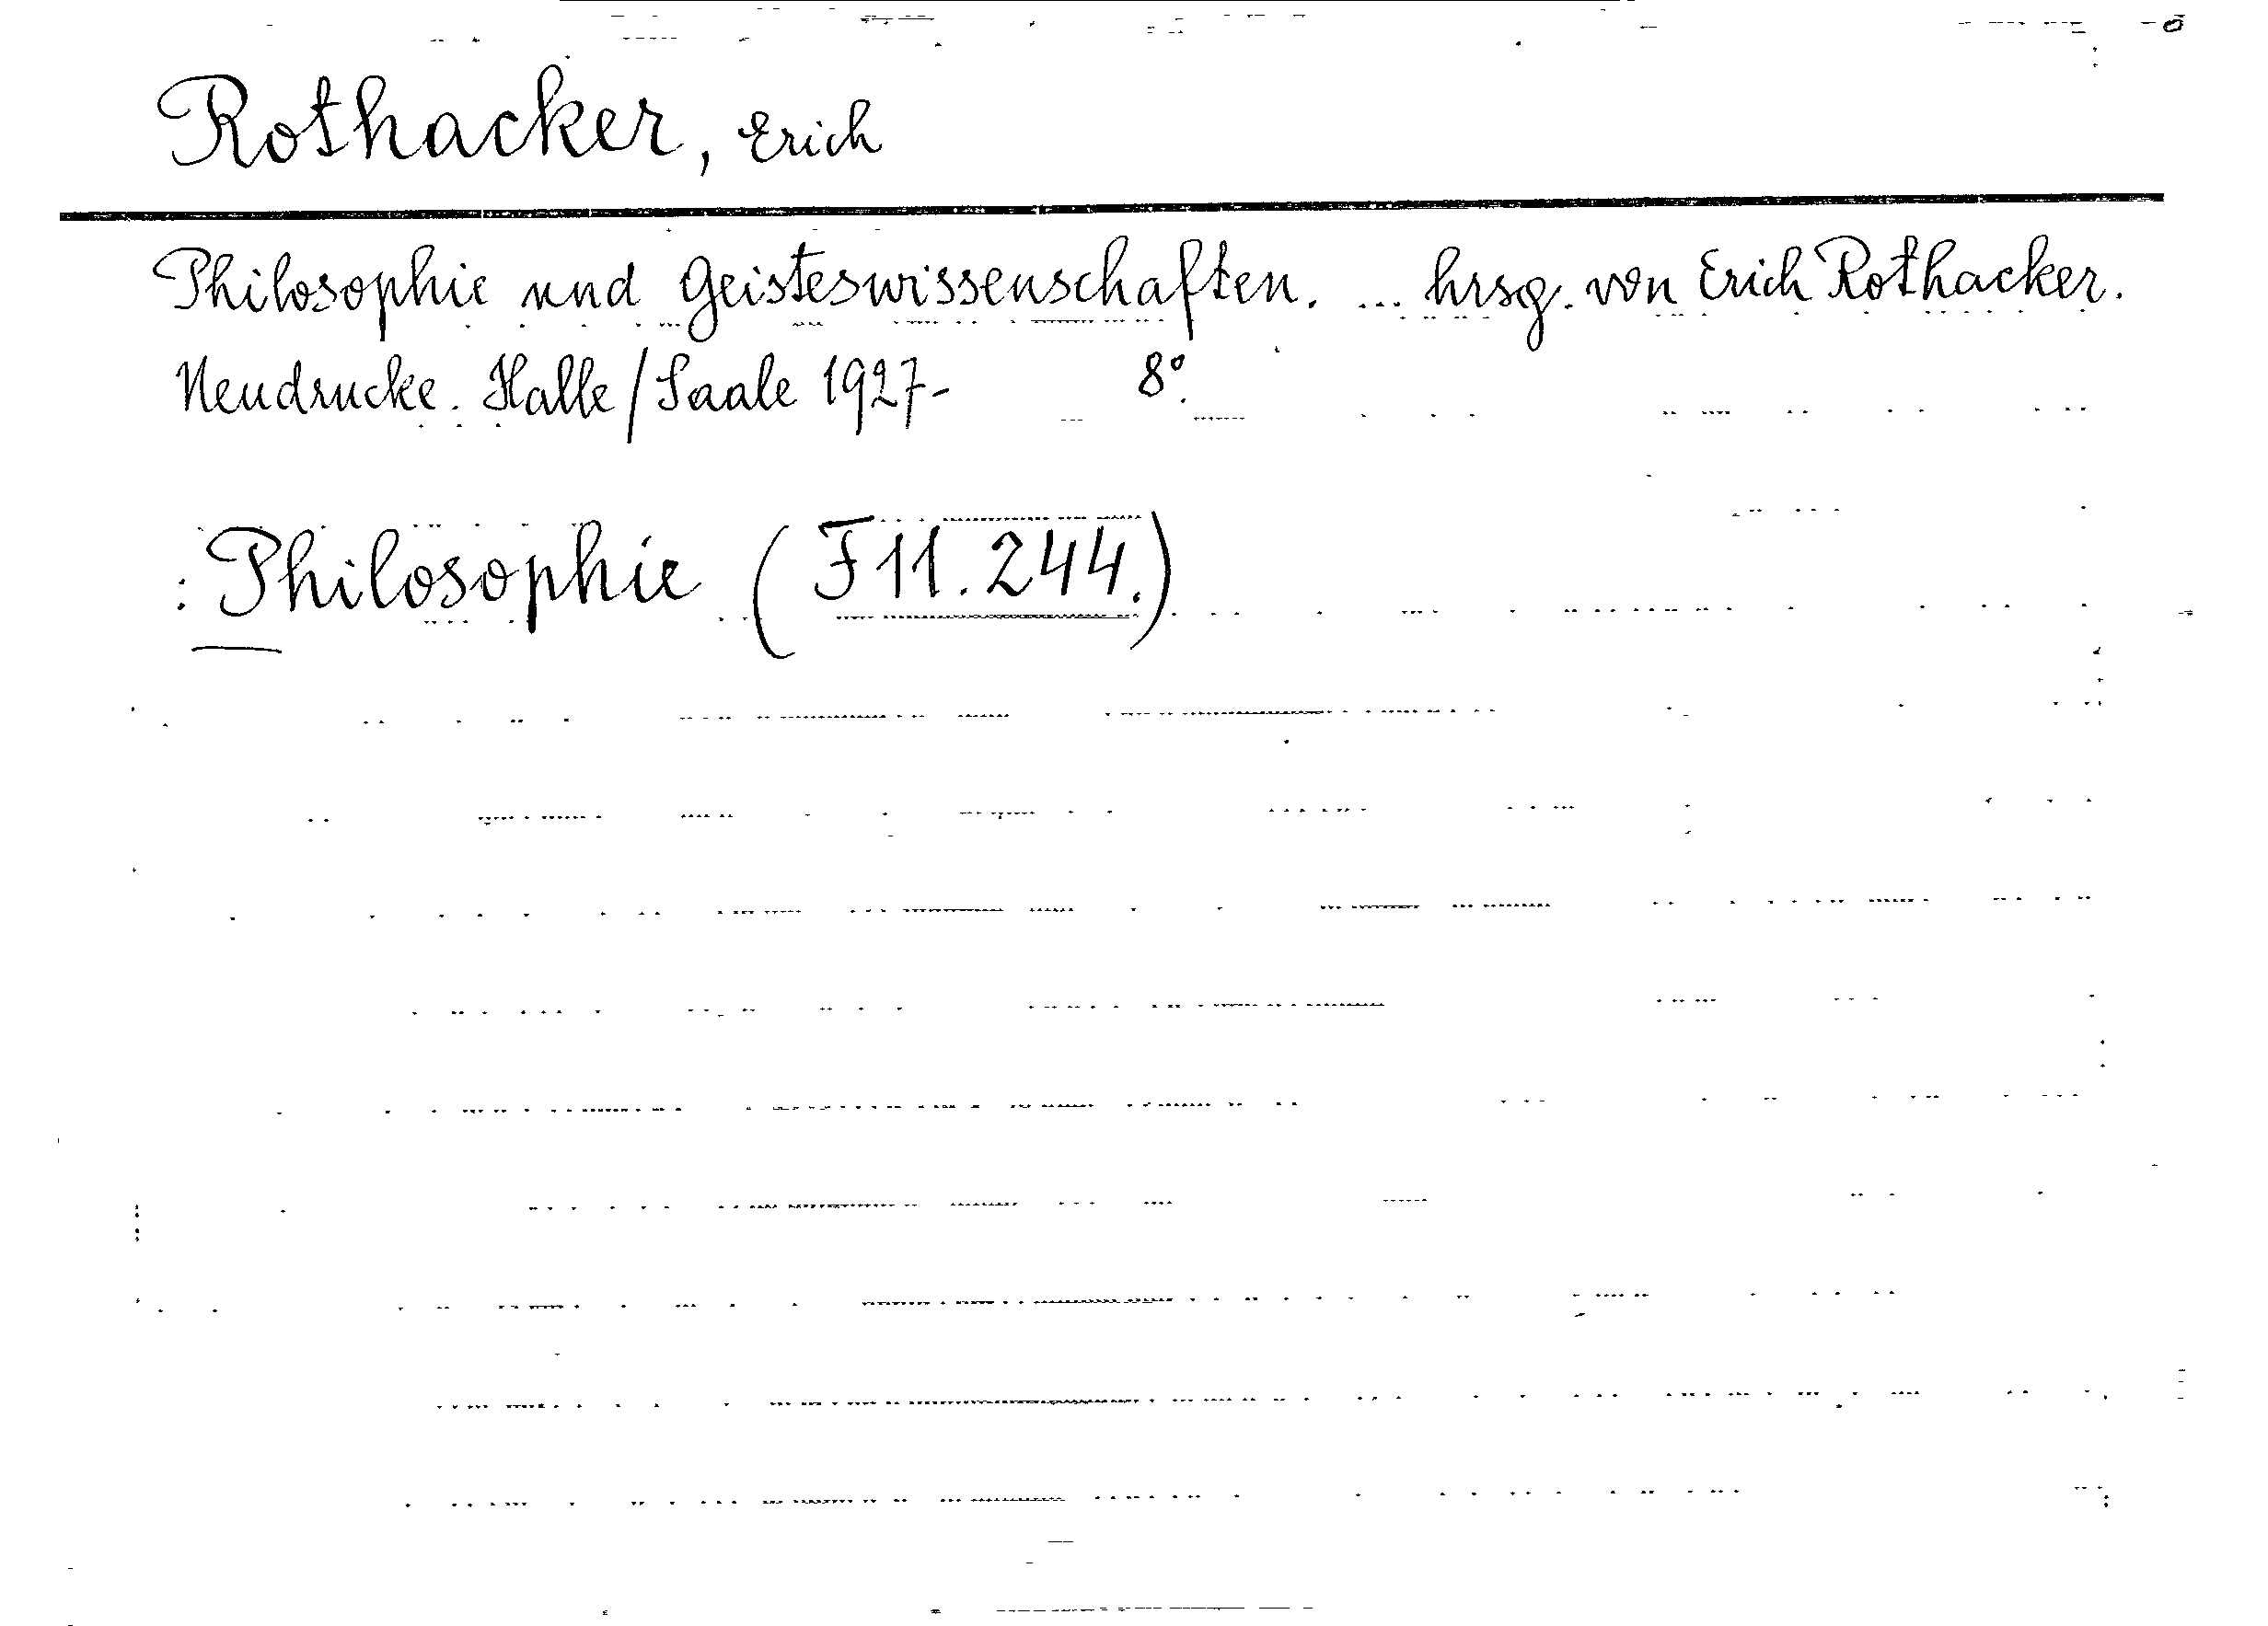 Rothacker, Erich
Philosophie und Geisteswissenschaften. ... hrsg. von Erich Rothacker.
Neudrucke. Halle/Saale 1927- 8°.
: Philosophie (F 11.244.)